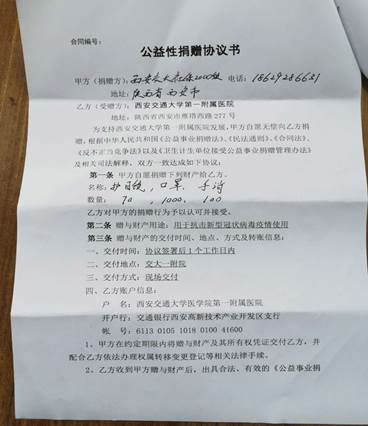 合同编号：
公益性捐赠协议书
甲方（捐赠方）：西安交大 2000级 电话：
地址：陕西省西安市
乙方（受赠方）：西安交通大学第一附属医院
地址：陕西省西安市雁塔西路 277 号
为支持西安交通大学第一附属医院发展，甲方自愿无偿向乙方捐
赠，根据中华人民共和国《公益事业捐赠法》、《民法通则》、《合同法》、
《反不正当竞争法》以及《卫生计生单位接受公益事业捐赠管理办法》
及相关司法解释，双方一致达成如下协议：
第一条 甲方自愿捐赠下列财产给乙方。
名称：护目镜，口罩，手消
数量：70，1000，100
乙方对甲方的捐赠行为予以认可并接受。
第二条 赠与财产用途：用于抗击新型冠状病毒疫情使用
第三条 赠与财产的交付时间、地点、方式及转账信息：
一、交付时间：协议签署后 1 个工作日内
二、交付地点：交大一附院
三、交付方式：现场交付
四、乙方账户信息：
户 名：西安交通大学医学院第一附属医院
开户行：交通银行西安高新技术产业开发区支行
帐 号：6113 0105 1018 0100 41600
1、甲方在约定期限内将赠与财产及其所有权凭证交付乙方，并
配合乙方依法办理权属转移变更登记等相关法律手续。
2、乙方收到甲方赠与财产后，出具合法、有效的《公益事业捐